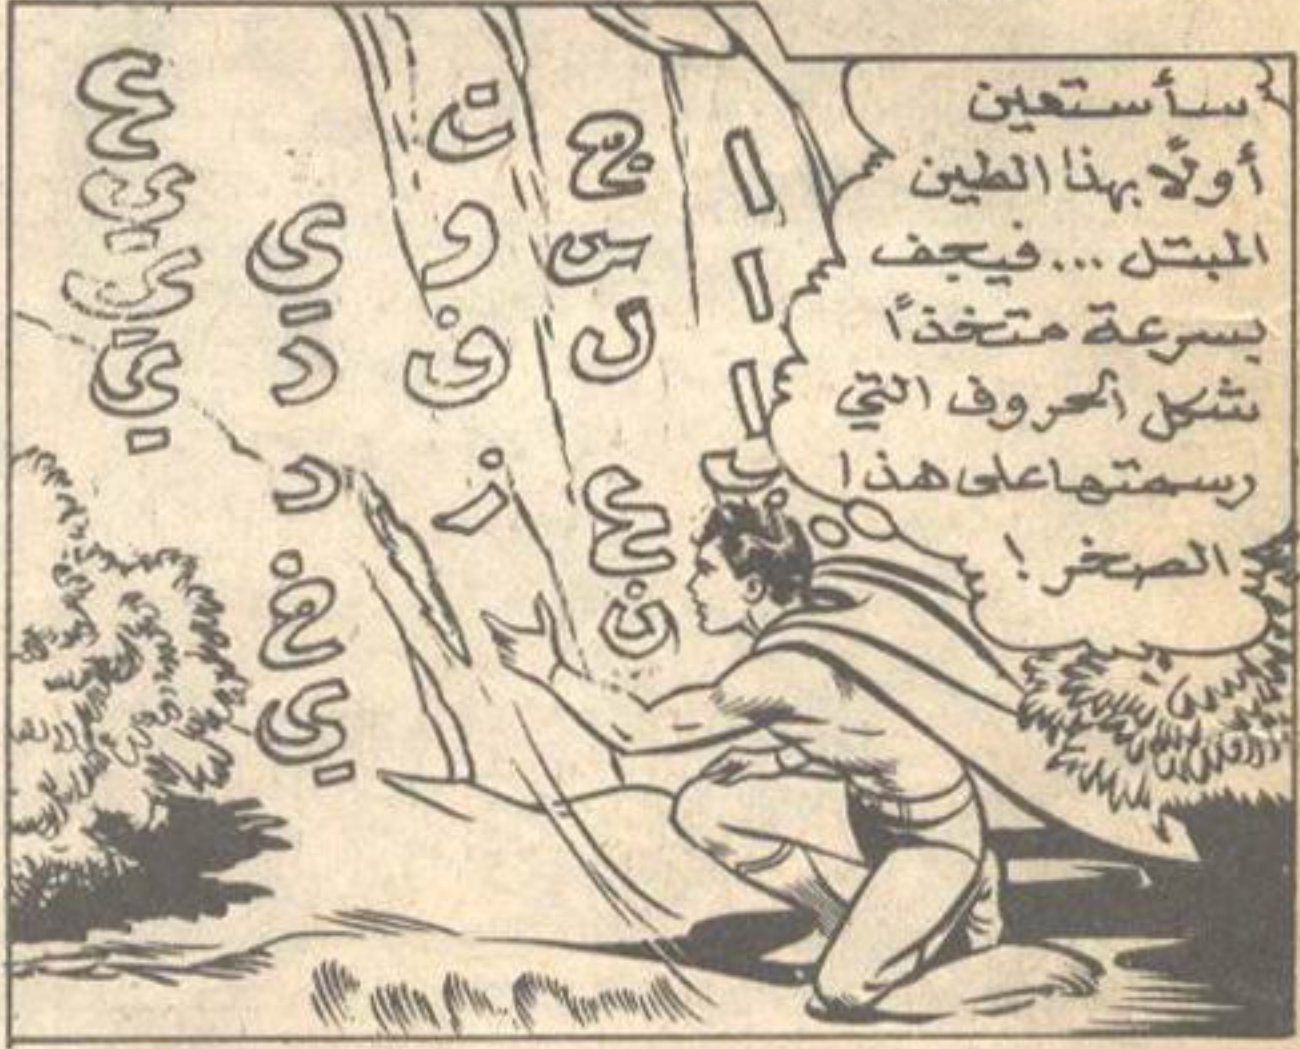 سأستعين
أولًا بهذا الطين
المبتل ...فيجف
بسرعة متخذًا
شكل الحروف التي
رسمتها على هذا
الصخر !
ا ا ا ب
ج س ل ع ن
ن و ف ز
ي د د غ ي
ع ي ي ي